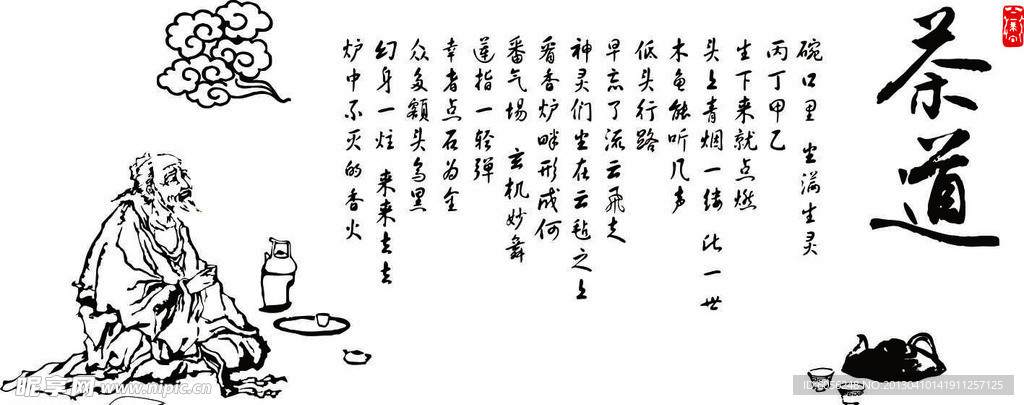 茶道
碗口里 坐满生灵
丙丁甲乙
生下来就点燃
头上青烟一缕 比一世
木鱼能听几声
低头行路
早忘了流云飞走
神灵们坐在云毡之上
看香炉畔形成何
番气场 玄机妙舞
莲指一轻弹
幸者点石为金
众多额头乌黑
幻身一炷 来来去去
炉中不灭的香火
昵享网 www.nipic.cn
ID:6056248 NO:20130410141911257125